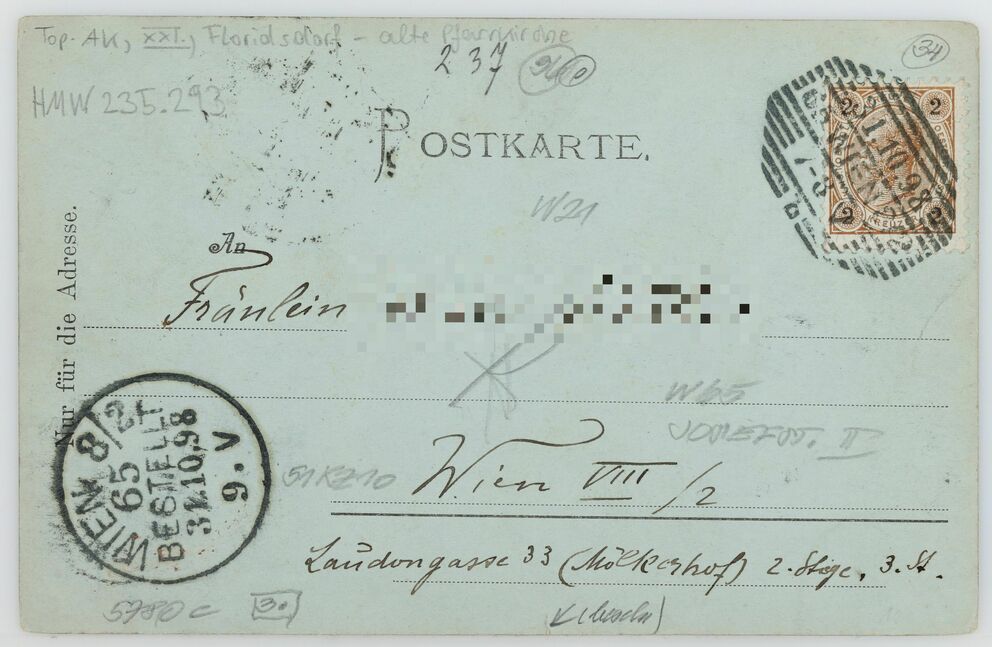 Top. AK, XXI., Floridsdorf - alte Pfarrkirche
237
34
HMW 235.293
POSTKARTE.
2 2
31.10.98
WIEN
7-8
2 KREUZER 2
W21
An
Nur für die Adresse.
Fräulein
W65
II
Wien VIII/2
WIEN 8/2
65
BESTELLT
31.10.98
9.V
Laudongasse 33 (Mölkerhof) 2. Stge, 3. St.
5780c 3.